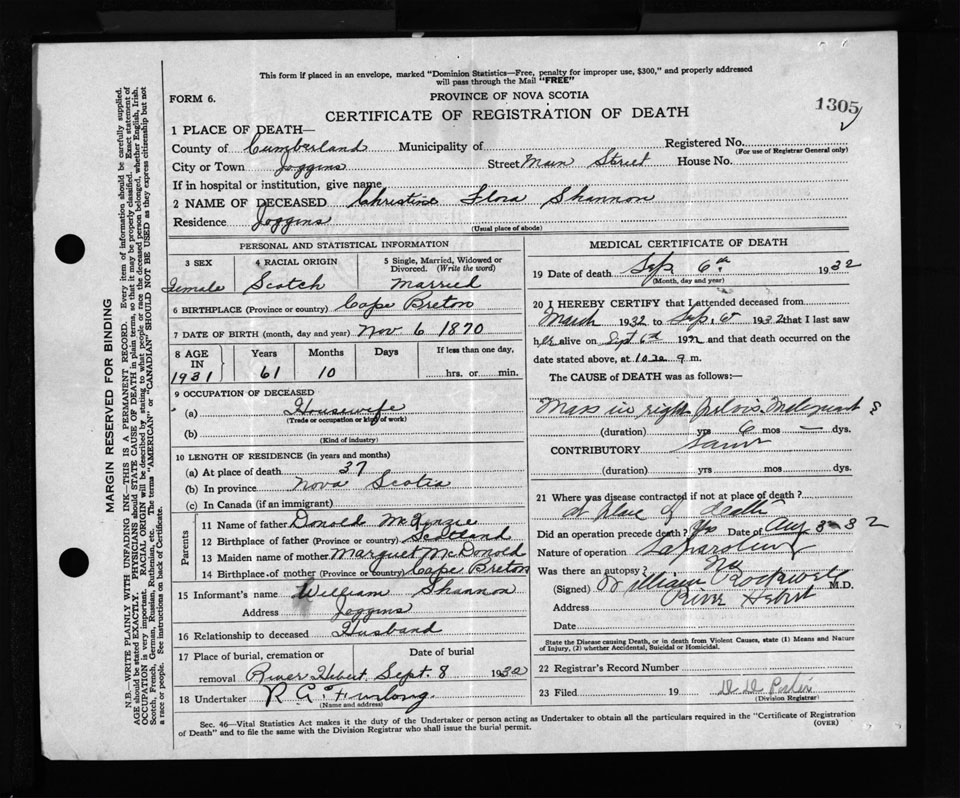 This form if placed in an envelope, marked "Dominion Statistics—Free, penalty for improper use, $300," and properly addressed
will pass through the Mail "FREE"
FORM 6.
PROVINCE OF NOVA SCOTIA
1305
CERTIFICATE OF REGISTRATION OF DEATH
1 PLACE OF DEATH—
County of Cumberland Municipality of Registered No.
(For use of Registrar General only)
City or Town Joggins Street Main Street House No.
If in hospital or institution, give name
2 NAME OF DECEASED Christine Flora Shannon
Residence Joggins
(Usual place of abode)
PERSONAL AND STATISTICAL INFORMATION
3 SEX 4 RACIAL ORIGIN 5 Single, Married, Widowed or Divorced. (Write the word)
Female Scotch Married
6 BIRTHPLACE (Province or country) Cape Breton
7 DATE OF BIRTH (month, day and year) Nov 6 1870
8 AGE IN Years Months Days If less than one day,
1931 61 10 hrs. or min.
9 OCCUPATION OF DECEASED
(a) Housewife
(Trade or occupation or kind of work)
(b)
(Kind of industry)
10 LENGTH OF RESIDENCE (in years and months)
(a) At place of death 37
(b) In province Nova Scotia
(c) In Canada (if an immigrant)
Parents
11 Name of father Donald McKinzie
12 Birthplace of father (Province or country) Scotland
13 Maiden name of mother Marguet McDonald
14 Birthplace of mother (Province or country) Cape Breton
15 Informant's name William Shannon
Address Joggins
16 Relationship to deceased Husband
17 Place of burial, cremation or removal Date of burial
River Hebert. Sept. 8 1932
18 Undertaker R. A. Furlong.
(Name and address)
MEDICAL CERTIFICATE OF DEATH
19 Date of death Sep 6th 1932
(Month, day and year)
20 I HEREBY CERTIFY that I attended deceased from
March 1932 to Sep. 6 1932 that I last saw
her alive on Sept 6th 1932 and that death occurred on the
date stated above, at m.
The CAUSE of DEATH was as follows:—
Mass in right pelvis. Malignant
(duration) yrs 6 mos — dys.
CONTRIBUTORY Same
(duration) yrs mos dys.
21 Where was disease contracted if not at place of death?
at place of death
Did an operation precede death? Yes Date of Aug 3-32
Nature of operation Laparotomy
Was there an autopsy? No
(Signed) William Rockwell M.D.
Address River Hebert
Date
State the Disease causing Death, or in death from Violent Causes, state (1) Means and Nature
of Injury, (2) whether Accidental, Suicidal or Homicidal.
22 Registrar's Record Number
23 Filed 19
(Division Registrar)
Sec. 46—Vital Statistics Act makes it the duty of the Undertaker or person acting as Undertaker to obtain all the particulars required in the "Certificate of Registration
of Death" and to file the same with the Division Registrar who shall issue the burial permit.
(OVER)
MARGIN RESERVED FOR BINDING
N.B.—WRITE PLAINLY WITH UNFADING INK—THIS IS A PERMANENT RECORD. Every item of information should be carefully supplied.
AGE should be stated EXACTLY. PHYSICIANS should STATE CAUSE OF DEATH in plain terms, so that it may be properly classified. Exact statement of
OCCUPATION is very important. RACIAL ORIGIN will be described by stating to what people or race the deceased person belonged, whether English, Irish,
Scotch, French, German, Russian, Ruthenian, etc. The terms "AMERICAN" or "CANADIAN" SHOULD NOT BE USED as they express citizenship but not
a race or people. See instructions on back of Certificate.